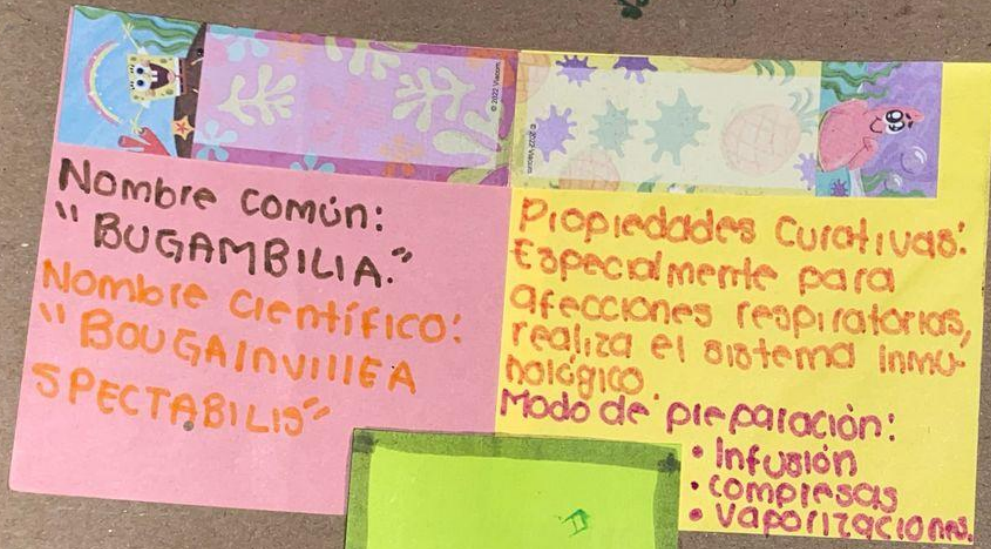 © 2022 Viacom.
© 2022 Viacom.
Nombre común:
"BUGAMBILIA."
Nombre científico:
"BOUGAINVIllEA
SPECTABILIS"
Propiedades Curativas:
Especialmente para
afecciones respiratorias,
realiza el sistema inmu-
nológico.
Modo de preparación:
• Infusión
• compresas
• Vaporizaciones.